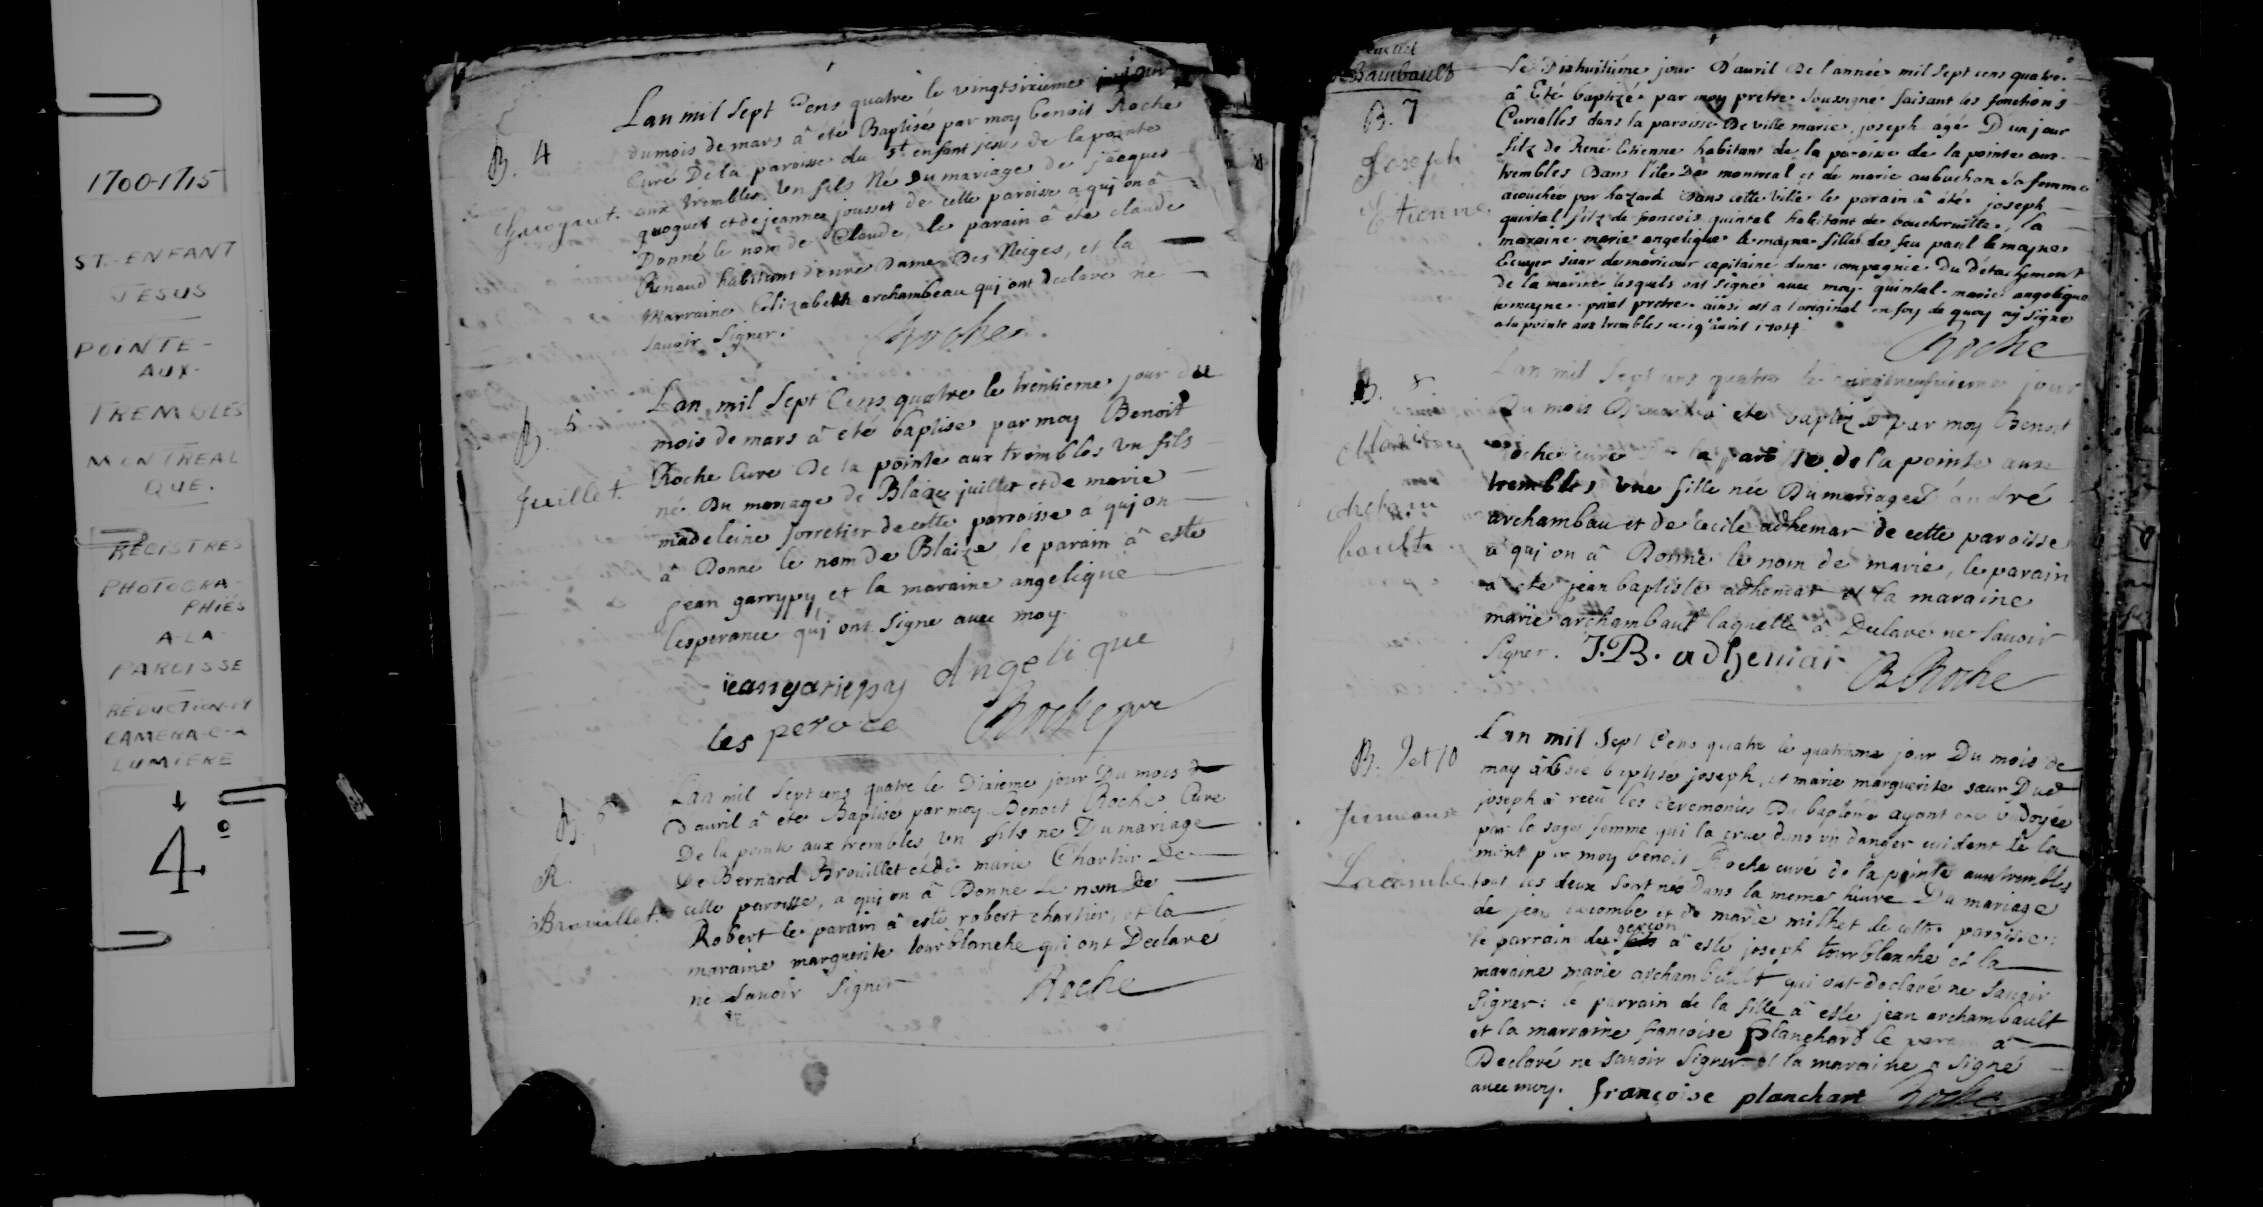 1700-1715
ST. ENFANT
JESUS
POINTE-
AUX-
TREMBLES
MONTREAL
QUE.
REGISTRES
PHOTOGRA-
PHIÉS
A-LA-
PAROISSE
RÉDUCTION-14
CAMERA-C-A
LUMIERE
4º
B. 4
Lan mil Sept Cens quatre le vingtsixieme jour
du mois de mars â été Baptisé par moy benoit Roche
Curé De la paroisse du St enfant jesus de la pointe
aux trembles Un fils Né Du mariage de jacques
quoguet et de jeanne jousset de cette paroisse a qui on â
Donné le nom de Claude, le parain â été claude
Renaud habitant denre Dame Des Neiges, et la
Marraine Elizabeth archambeau qui ont declare ne
savoir Signer.
Roche
B. 5
Juillet.
Lan mil Sept Cens quatre le trentieme jour du
mois de mars â eté baptisé par moy Benoit
Roche Cure De la pointe aux trembles Un fils
né Du mariage de Blaize juillet et de marie
madeleine forretier de cette parroisse â qui on
â Donne le nom de Blaize le parain â esté
jean garrypy et la maraine angelique
lesperance qui ont signe avec moy.
jean gariepy Angelique
les peroce Roche pre
B. 6
R.
Brouillet.
Lan mil Sept cens quatre le Dixieme jour Du mois
D'avril â eté Baptisé par moy Benoit Roche Cure
De la pointe aux trembles, Un fils ne Du mariage
De Bernard Brouillet et de marie Chartier De
cette paroisse, a qui on â Donne le nom de
Robert le parain â esté robert chartier, et la
maraine marguerite tourblanche qui ont Declaré
ne Savoir Signer
Roche
B. 7
Joseph
Etienne
Le Dixhuitiéme jour D'avril De l'année mil sept cens quatre
â Eté baptizé par moy pretre soussigné faisant les fonctions
Curialles dans la paroisse De ville marie, joseph âgé D'un jour
filz de René Etienne habitant de la paroisse de la pointe aux
trembles Dans l'ile De montreal et de marie aubuchon sa femme
acouchée par hazard Dans cette Ville le parain â été joseph
quintal filz de francois quintal habitant de boucherville, la
maraine marie angelique le moyne fille de feu paul le moyne
Ecuyer sieur de maricour capitaine dune compagnie Du Détachement
de la marine lesquels ont signé avec moy. quintal. marie angelique
lemoyne. priat pretre. ainsi est a l'original en foy de quoy ay signé
a la pointe aux trembles ce 19 avril 1704
Roche
B. 8
Lan mil Sept cens quatre le vingtneufvieme jour
Du mois D'avril â eté baptizé par moy Benoit
Roche curé De la paroisse de la pointe aux
trembles Une fille née Du mariage d'andré
archambau et de Cecile adhemar de cette paroisse
a qui on â Donné le nom de marie, le parain
a eté jean baptiste adhemar et la maraine
marie archambaut laquelle â Declaré ne Savoir
signer. J.B. adhemar B Roche
B. 9 et 10
Jumeaux
Lacombe
Lan mil Sept Cens quatre le quatrieme jour Du mois de
may joseph, et marie marguerite sœur Dud
joseph â reçu les cérémonies Du baptême ayant été
par la sage femme qui la crue dans un danger evident le
tout par moy benoit Roche curé de la pointe aux trembles
les deux sont nés dans la meme heure Du mariage
de jean lacombe et de marie milhet de cette paroisse:
le parrain du garçon â esté joseph tourblanche et la
maraine marie archambault qui ont declaré ne savoir
signer: le parrain de la fille â esté jean archambault
et la marraine francoise Planchard le parain â
Declaré ne savoir signer et la maraine a signé
avec moy. françoise planchart Roche